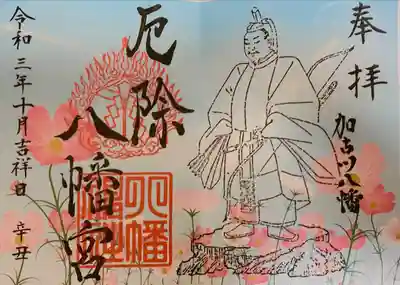 奉拝
加古川八幡
厄除
八幡宮
令和三年十月吉祥日 辛丑
八幡